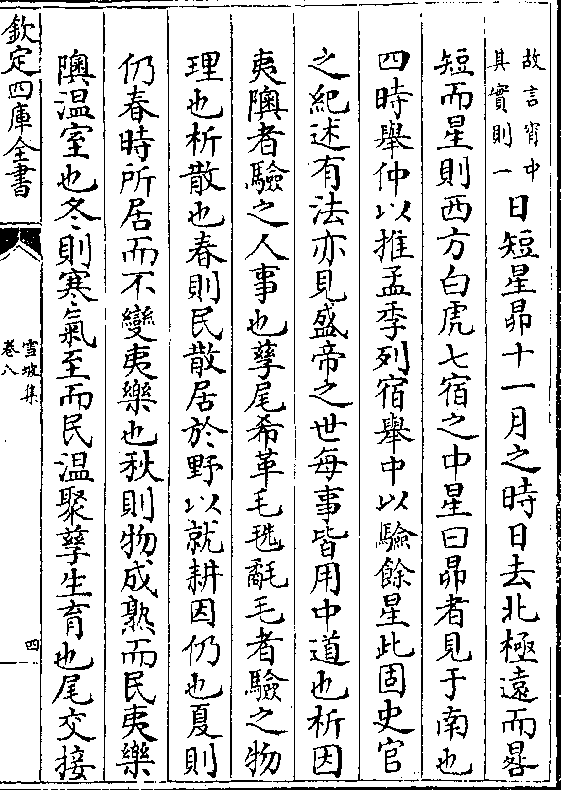 故言宵中
其實則一
日短星昴十一月之時日去北極遠而晷
短而星則西方白虎七宿之中星曰昴者見于南也
四時舉仲以推孟季列宿舉中以驗餘星此固史官
之紀述有法亦見盛帝之世每事皆用中道也析因
夷隩者驗之人事也孳尾希革毛毨氄毛者驗之物
理也析散也春則民散居於野以就耕因仍也夏則
仍春時所居而不變夷樂也秋則物成熟而民夷樂
隩温室也冬則寒氣至而民温聚孳生育也尾交接
欽定四庫全書
雪坡集
卷八
四